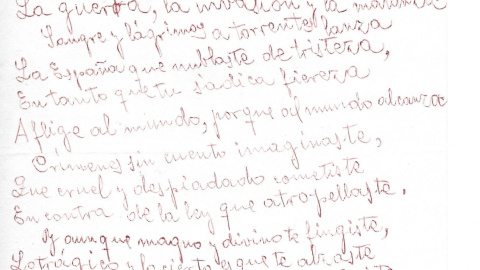 La guerra, la invasión y la matanza
Sangre y lágrimas a torrentes lanza
La España que nublaste de tristeza,
En tanto que tu sádica fiereza
Aflige al mundo, porque al mundo alcanza
Crímenes sin cuento imaginaste,
Que cruel y despiadado cometiste
En contra de la ley que atropellaste.
Ay aunque magno y divino te fingiste,
Lo trágico y lo cierto es que te alzaste